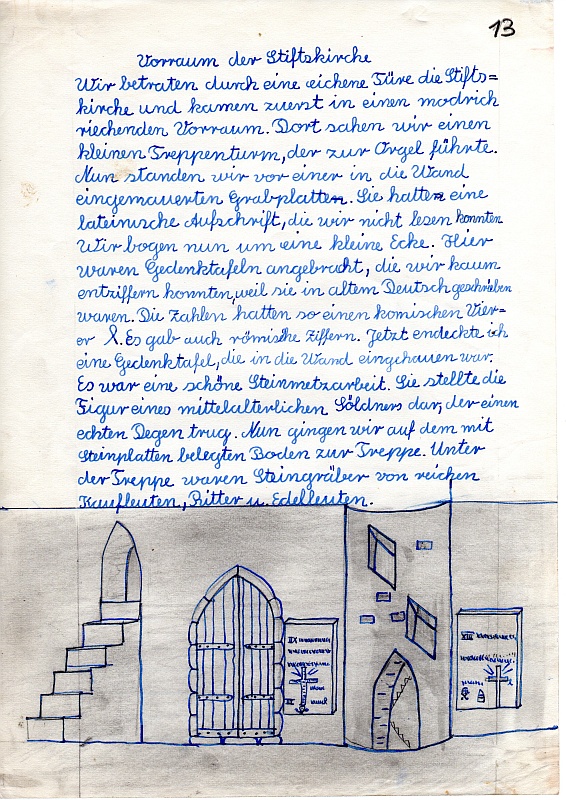 13
Vorraum der Stiftskirche
Wir betraten durch eine eichene Türe die Stifts=
kirche und kamen zuerst in einen modrich
riechenden Vorraum. Dort sahen wir einen
kleinen Treppenturm, der zur Orgel führte.
Nun standen wir vor einer in die Wand
eingemauerten Grabplatten. Sie hatten eine
lateinische Aufschrift, die wir nicht lesen konnten
Wir bogen nun um eine kleine Ecke. Hier
waren Gedenktafeln angebracht, die wir kaum
entziffern konnten, weil sie in altem Deutsch geschrieben
waren. Die Zahlen hatten so einen komischen Vier=
er. Es gab auch römische Ziffern. Jetzt endeckte ich
eine Gedenktafel, die in die Wand eingehauen war.
Es war eine schöne Steinmetzarbeit. Sie stellte die
Figur eines mittelalterlichen Söldners dar, der einen
echten Degen trug. Nun gingen wir auf dem mit
Steinplatten belegten Boden zur Treppe. Unter
der Treppe waren Steingräber von reichen
Kaufleuten, Ritter u. Edelleuten.
IX
XIII